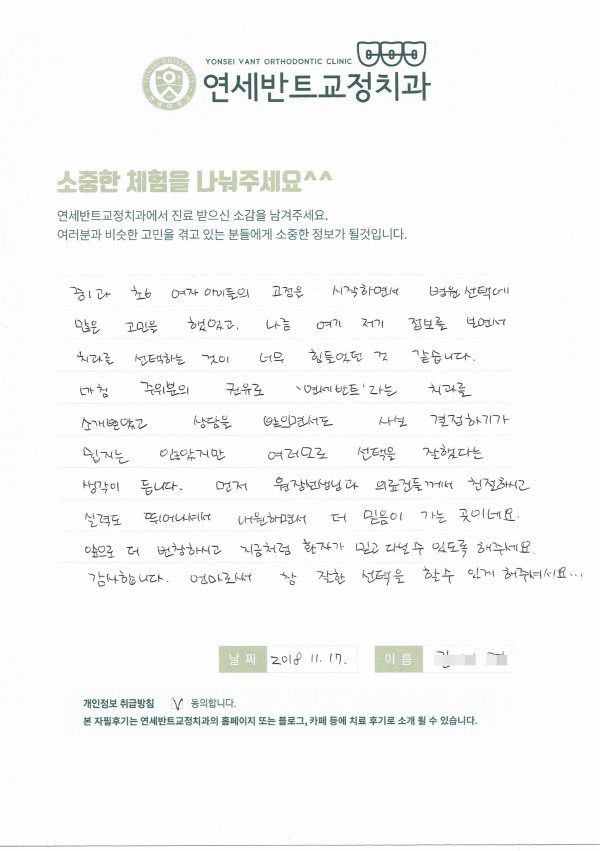 YONSEI VANT ORTHODONTIC CLINIC
연세반트교정치과
소중한 체험을 나눠주세요^^
연세반트교정치과에서 진료 받으신 소감을 남겨주세요.
여러분과 비슷한 고민을 겪고 있는 분들에게 소중한 정보가 될것입니다.
중1과 초6 여자 아이들의 교정을 시작하면서 병원 선택에
많은 고민을 했었고, 나름 여기 저기 정보를 보면서
치과를 선택하는 것이 너무 힘들었던 것 같습니다.
마침 주위분의 권유로 '연세반트'라는 치과를
소개받았고 상담을 받으면서도 사실 결정하기가
쉽지는 않았지만 여러모로 선택을 잘했다는
생각이 듭니다. 먼저 원장선생님과 의료진들께서 친절하시고
실력도 뛰어나셔서 내원하면서 더 믿음이 가는 곳이네요.
앞으로 더 번창하시고 지금처럼 환자가 믿고 다닐 수 있도록 해주세요.
감사합니다. 엄마로서 참 잘한 선택을 할수 있게 해주셔서요...
날 짜 2018 11. 17.
이 름
개인정보 취급방침 V 동의합니다.
본 자필후기는 연세반트교정치과의 홈페이지 또는 블로그, 카페 등에 치료 후기로 소개 될 수 있습니다.